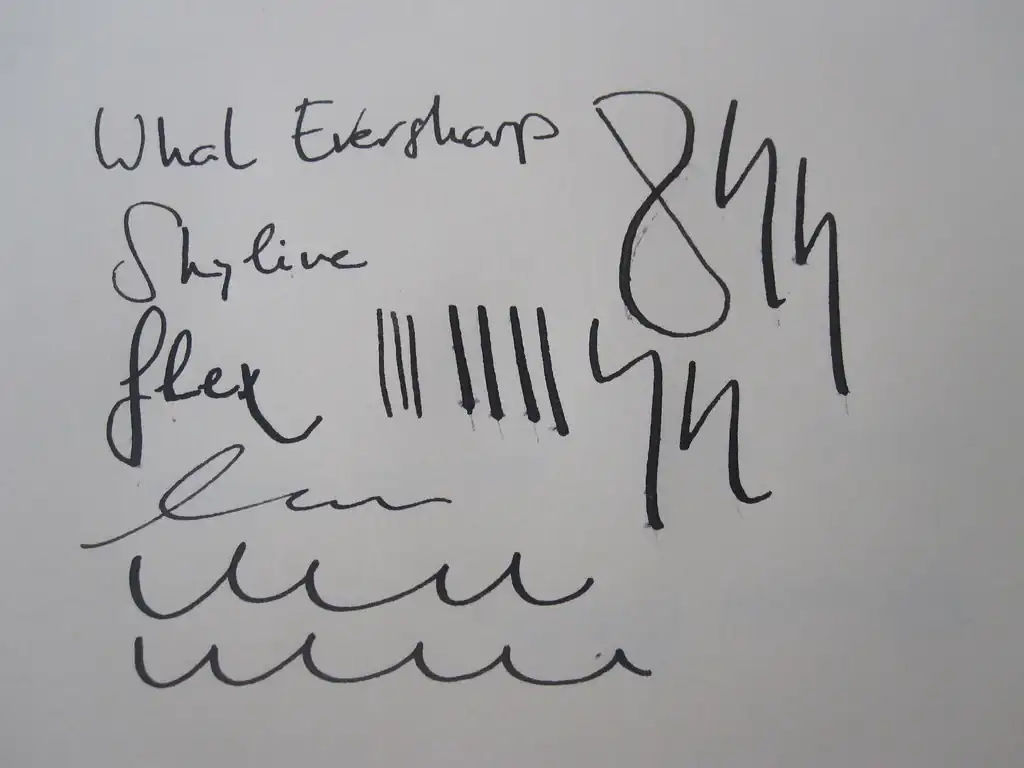 Whal Eversharp
Skyline
flex